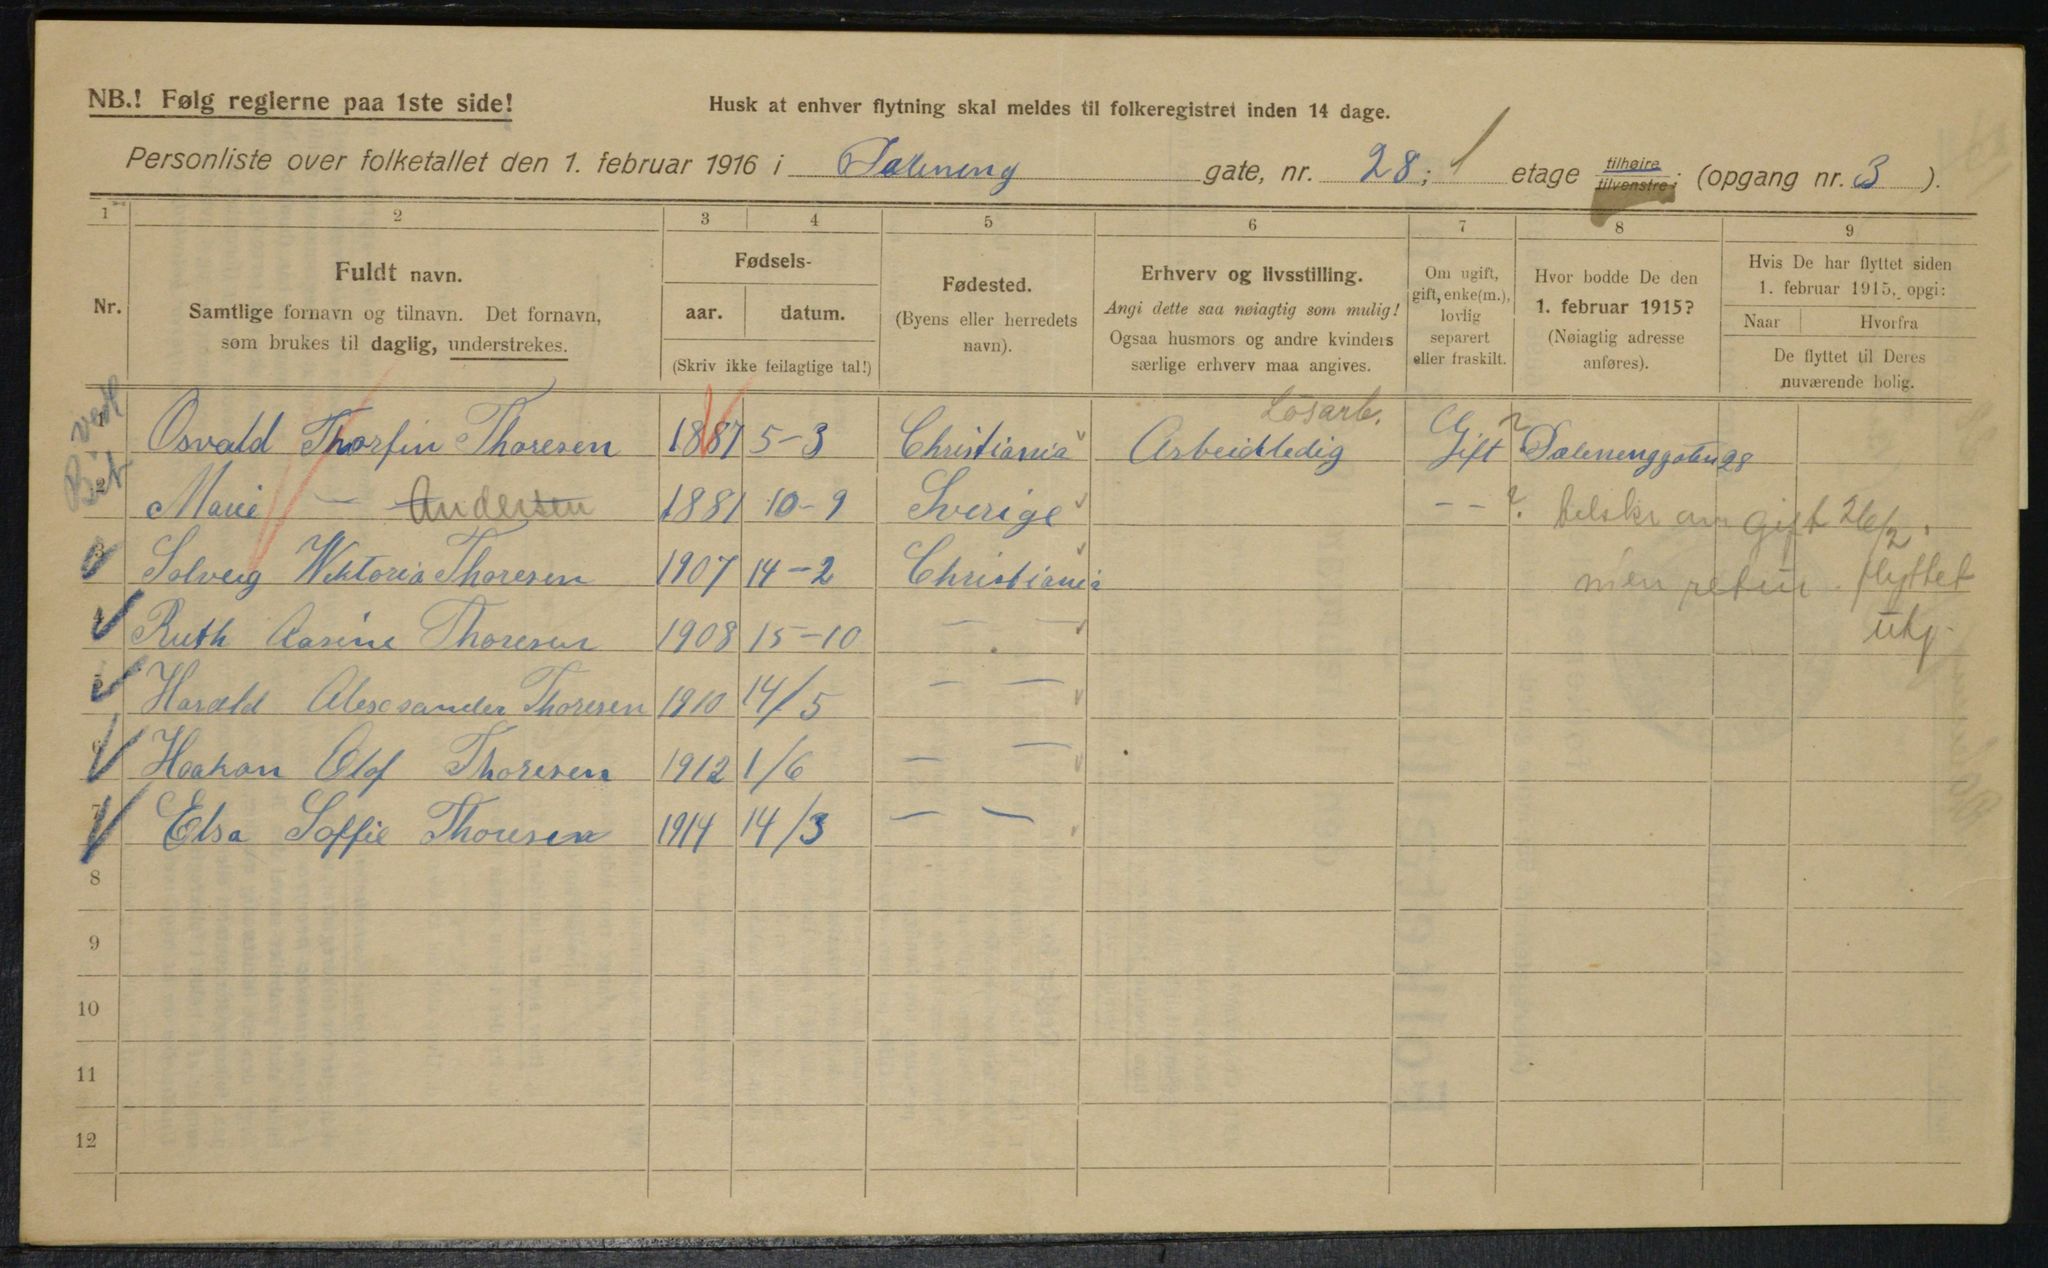 NB.! Følg reglerne paa 1ste side!
Husk at enhver flytning skal meldes til folkeregistret inden 14 dage.
Personliste over folketallet den 1. februar 1916 i Dæleneng gate, nr. 28; 1 etage tilhøire tilvenstre; (opgang nr. 3 ).
1 2 3 4 5 6 7 8 9
Nr.
Fuldt navn.
Samtlige fornavn og tilnavn. Det fornavn,
som brukes til daglig, understrekes.
Fødsels-
aar. datum.
(Skriv ikke feilagtige tal!)
Fødested.
(Byens eller herredets
navn).
Erhverv og livsstilling.
Angi dette saa nøiagtig som mulig!
Ogsaa husmors og andre kvinders
særlige erhverv maa angives.
Om ugift,
gift, enke(m.),
lovlig
separert
eller fraskilt.
Hvor bodde De den
1. februar 1915?
(Nøiagtig adresse
anføres).
Hvis De har flyttet siden
1. februar 1915, opgi:
Naar Hvorfra
De flyttet til Deres
nuværende bolig.
Løsarb.
1 Osvald Thorfin Thoresen 1887 5-3 Christiania Arbeidsledig Gift ? Dælenenggaten 28
2 Marie — Andersen 1881 10-9 Sverige - - ? tilskr om Gift 26/2
3 Solveig Viktoria Thoresen 1907 14-2 Christiania men retur. flyttet
4 Ruth Aasine Thoresen 1908 15-10 — — ubkj.
5 Harald Alexsander Thoresen 1910 14/5 — —
6 Haakon Olof Thoresen 1912 1/6 — —
7 Elsa Soffie Thoresen 1914 14/3 — —
8
9
10
11
12